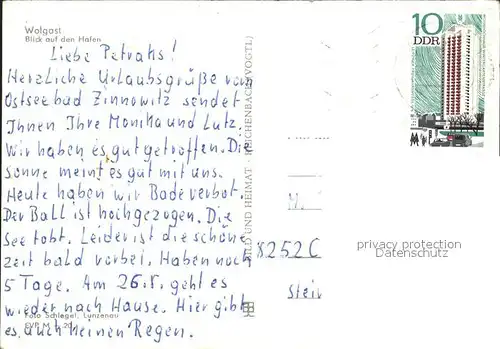 Wolgast
Blick auf den Hafen
Liebe Petraks!
Herzliche Urlaubsgrüße vom
Ostseebad Zinnowitz sendet
Ihnen Ihre Monika und Lutz.
Wir haben es gut getroffen. Die
Sonne meint es gut mit uns.
Heute haben wir Badeverbot.
Der Ball ist hochgezogen. Die
See tobt. Leider ist die schöne
Zeit bald vorbei. Haben noch
5 Tage. Am 26.8. geht es
wieder nach Hause. Hier gibt
es auch keinen Regen.
Foto Schlegel, Lunzenau
BILD UND HEIMAT REICHENBACH (VOGTL)
10
DDR
M.
8252 C
privacy protection
Datenschutz